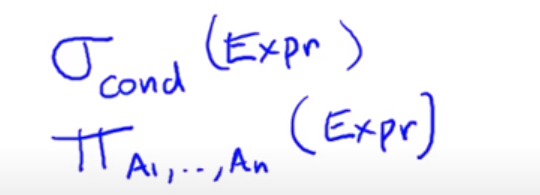 σ cond (Expr)
π A1,..,An (Expr]